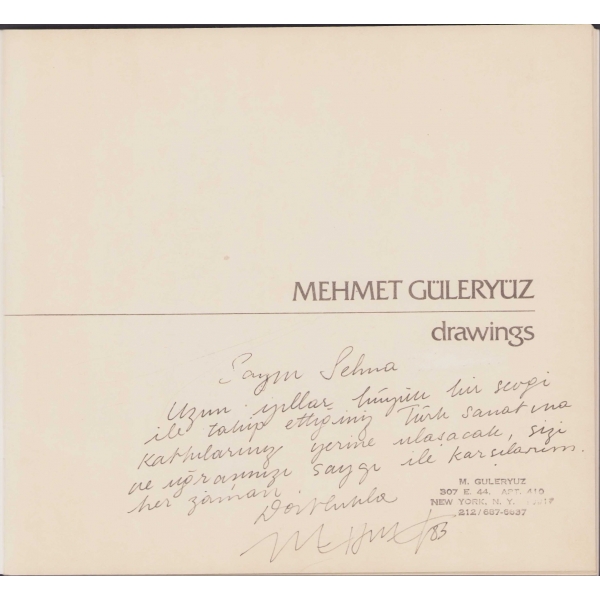 MEHMET GÜLERYÜZ
drawings
Sayın Selma
Uzun yıllar büyük bir sevgi
ile takip ettiğiniz Türk sanatına
katkılarınız yerine ulaşacak, sizi
ve uğraşınızı saygı ile karşılarım.
her zaman
Dostlukla
83
M. GULERYUZ
307 E. 44, APT. 410
NEW YORK, N. Y.
212/687-